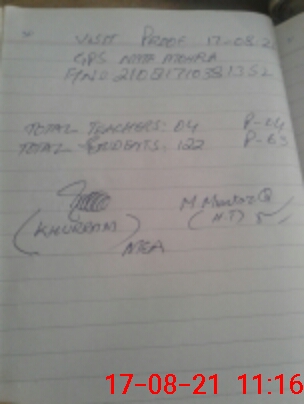 VISIT PROOF 17-08-2
GPS NATA MOHRA
F/NO 21081710381352
TOTAL TEACHERS: 04 P-04
TOTAL STUDENTS: 122 P-63
(KHURRAM)
MEA
M. Mumtaz Q
(H.T)
17-08-21 11:16